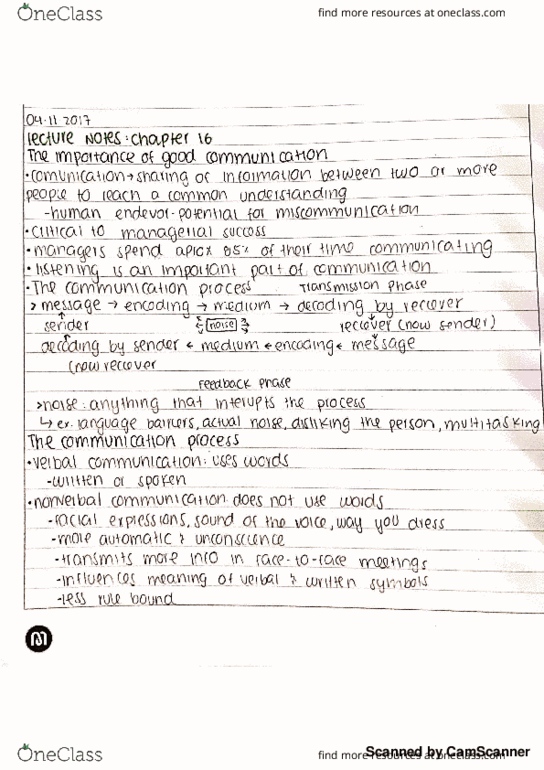 OneClass
find more resources at oneclass.com
04.11 2017
lecture notes: chapter 16
The importance of good communication
•comunication → sharing of information between two or more
people to reach a common understanding
-human endevor-potential for miscommunication
•critical to managerial success
•managers spend aprox 85% of their time communicating
•listening is an important part of communication
•The communication process transmission phase
> message → encoding → medium → decoding by reciever
sender noise reciever (now sender)
decoding by sender ← medium ← encoding ← message
(now reciever
feedback phase
>noise: anything that interupts the process
↳ ex. language barriers, actual noise, disliking the person, multitasking
The communication process
•verbal communication: uses words
-written or spoken
•nonverbal communication does not use words
-facial expressions, sound of the voice, way you dress
-more automatic & unconscience
-transmits more info in face-to-face meetings
-influences meaning of verbal & written symbols
-less rule bound
OneClass
find more resources at oneclass.com
Scanned by CamScanner